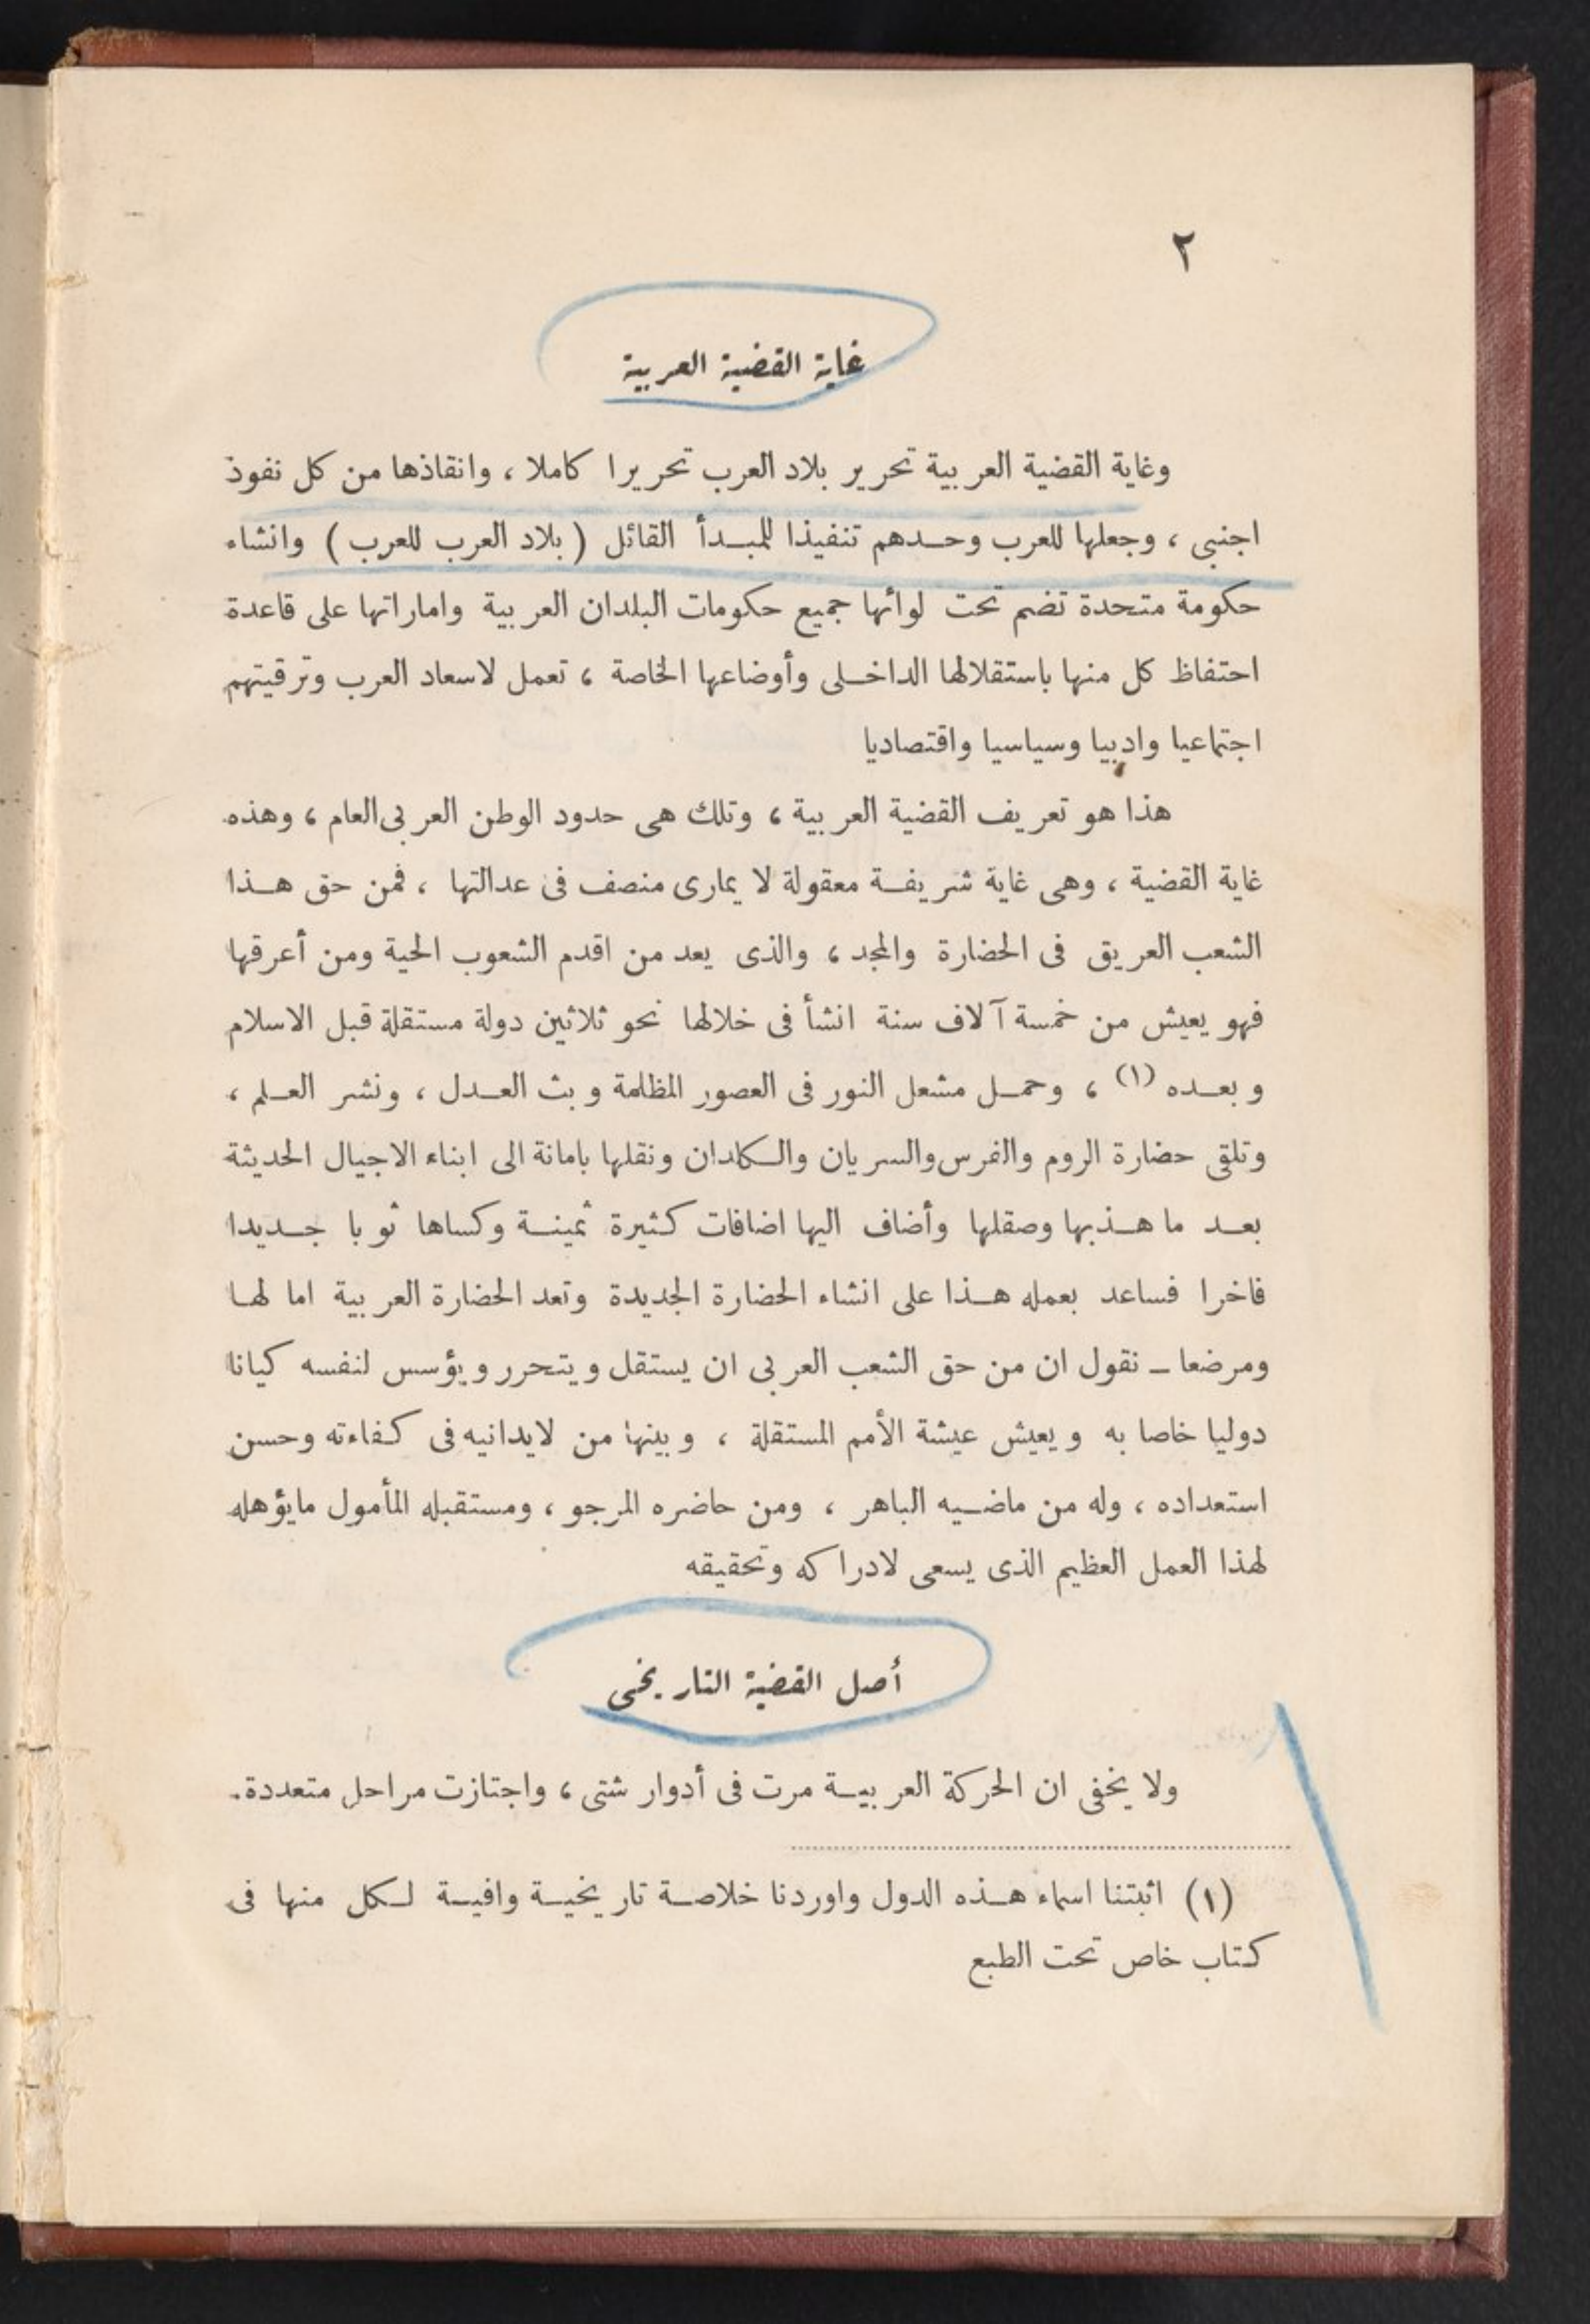 ٢
غاية القضية العربية
وغاية القضية العربية تحرير بلاد العرب تحريرا كاملا ، وانقاذها من كل نفوذ
اجنبي ، وجعلها للعرب وحدهم تنفيذا للمبدأ القائل ( بلاد العرب للعرب ) وانشاء
حكومة متحدة تضم تحت لوائها جميع حكومات البلدان العربية واماراتها على قاعدة
احتفاظ كل منها باستقلالها الداخلى وأوضاعها الخاصة ، تعمل لاسعاد العرب وترقيتهم
اجتماعيا وادبيا وسياسيا واقتصاديا
هذا هو تعريف القضية العربية ، وتلك هى حدود الوطن العربى العام ، وهذه
غاية القضية ، وهى غاية شريفة معقولة لا يمارى منصف فى عدالتها ، فمن حق هذا
الشعب العريق فى الحضارة والمجد ، والذى يعد من اقدم الشعوب الحية ومن أعرقها
فهو يعيش من خمسة آلاف سنة انشأ فى خلالها نحو ثلاثين دولة مستقلة قبل الاسلام
وبعده (١) ، وحمل مشعل النور فى العصور المظلمة وبث العدل ، ونشر العلم ،
وتلقى حضارة الروم والفرس والسريان والكلدان ونقلها بامانة الى ابناء الاجيال الحديثة
بعد ما هذبها وصقلها وأضاف اليها اضافات كثيرة ثمينة وكساها ثوبا جديدا
فاخرا فساعد بعمله هذا على انشاء الحضارة الجديدة وتعد الحضارة العربية اما لها
ومرضعا ـ نقول ان من حق الشعب العربى ان يستقل ويتحرر ويؤسس لنفسه كيانا
دوليا خاصا به ويعيش عيشة الأمم المستقلة ، وبينها من لايدانيه فى كفاءته وحسن
استعداده ، وله من ماضيه الباهر ، ومن حاضره المرجو ، ومستقبله المأمول مايؤهله
لهذا العمل العظيم الذى يسعى لادراكه وتحقيقه
أصل القضية التاريخى
ولا يخفى ان الحركة العربية مرت فى أدوار شتى ، واجتازت مراحل متعددة.
(١) اثبتنا اسماء هذه الدول واوردنا خلاصة تاريخية وافية لكل منها فى
كتاب خاص تحت الطبع